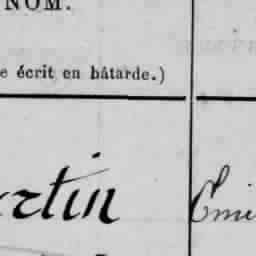 NOM.
e écrit en bâtarde.)
rtin Emi